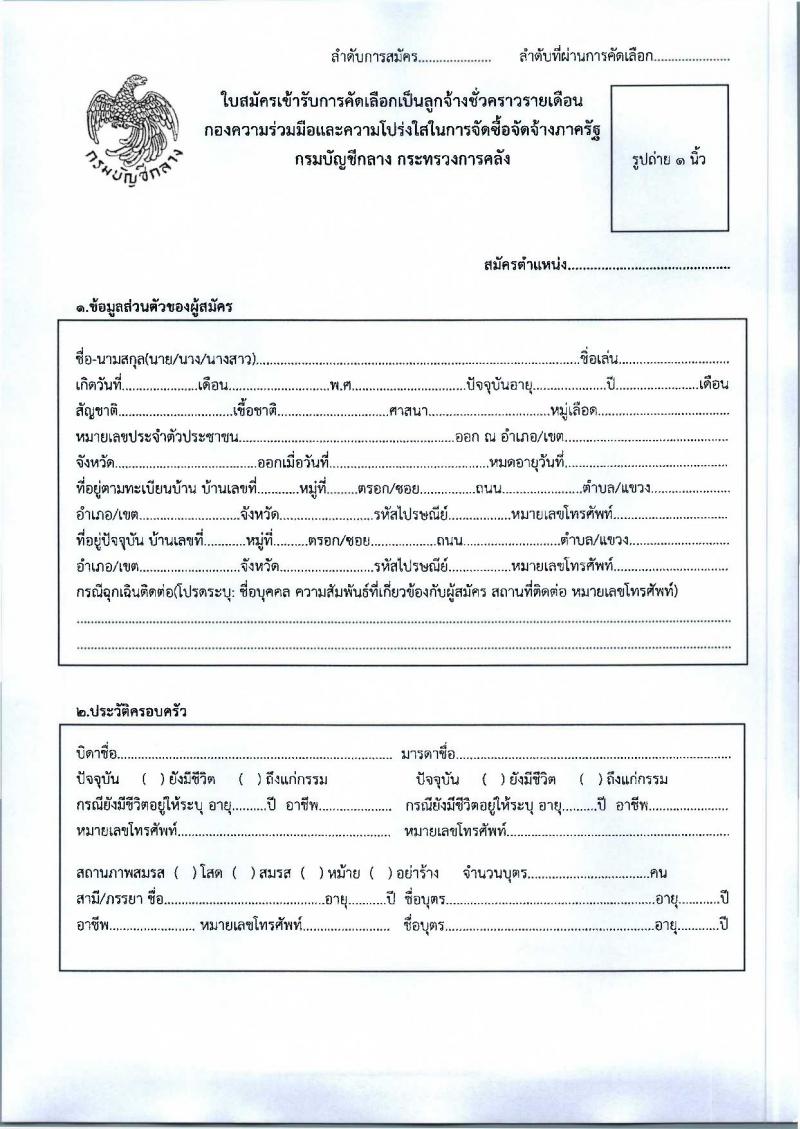 ลำดับการสมัคร..................... ลำดับที่ผ่านการคัดเลือก......................
ใบสมัครเข้ารับการคัดเลือกเป็นลูกจ้างชั่วคราวรายเดือน
กองความร่วมมือและความโปร่งใสในการจัดซื้อจัดจ้างภาครัฐ
กรมบัญชีกลาง กระทรวงการคลัง
กรมบัญชีกลาง
รูปถ่าย ๑ นิ้ว
สมัครตำแหน่ง................................................
๑.ข้อมูลส่วนตัวของผู้สมัคร
ชื่อ-นามสกุล(นาย/นาง/นางสาว)..............................................................ชื่อเล่น................................
เกิดวันที่......................เดือน.............................พ.ศ.................................ปัจจุบันอายุ.....................ปี........................เดือน
สัญชาติ.................................เชื้อชาติ................................ศาสนา...................................หมู่เลือด......................................
หมายเลขประจำตัวประชาชน..............................................................ออก ณ อำเภอ/เขต...............................................
จังหวัด.........................................ออกเมื่อวันที่..............................................หมดอายุวันที่...............................................
ที่อยู่ตามทะเบียนบ้าน บ้านเลขที่............หมู่ที่.........ตรอก/ซอย................ถนน.......................ตำบล/แขวง.......................
อำเภอ/เขต.............................จังหวัด...........................รหัสไปรษณีย์..................หมายเลขโทรศัพท์.................................
ที่อยู่ปัจจุบัน บ้านเลขที่............หมู่ที่..........ตรอก/ซอย...................ถนน............................ตำบล/แขวง.............................
อำเภอ/เขต.............................จังหวัด...........................รหัสไปรษณีย์..................หมายเลขโทรศัพท์.................................
กรณีฉุกเฉินติดต่อ(โปรดระบุ: ชื่อบุคคล ความสัมพันธ์ที่เกี่ยวข้องกับผู้สมัคร สถานที่ติดต่อ หมายเลขโทรศัพท์)
๒.ประวัติครอบครัว
บิดาชื่อ................................................................ มารดาชื่อ................................................................
ปัจจุบัน ( ) ยังมีชีวิต ( ) ถึงแก่กรรม ปัจจุบัน ( ) ยังมีชีวิต ( ) ถึงแก่กรรม
กรณียังมีชีวิตอยู่ให้ระบุ อายุ..........ปี อาชีพ..................... กรณียังมีชีวิตอยู่ให้ระบุ อายุ..........ปี อาชีพ.......................
หมายเลขโทรศัพท์............................................................. หมายเลขโทรศัพท์................................................................
สถานภาพสมรส ( ) โสด ( ) สมรส ( ) หม้าย ( ) อย่าร้าง จำนวนบุตร...................................คน
สามี/ภรรยา ชื่อ..............................................อายุ...........ปี ชื่อบุตร............................................................อายุ............ปี
อาชีพ......................... หมายเลขโทรศัพท์......................... ชื่อบุตร............................................................อายุ............ปี